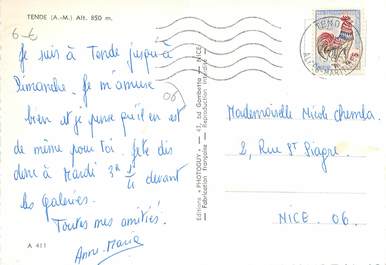 TENDE (A.-M.) Alt. 850 m.
6-€
Je suis à Tende jusqu'à
Dimanche. Je m'amuse
bien et je pense qu'il en est
de même pour toi.
donc à Mardi 3 devant
les Galeries.
Toutes mes amitiés.
Anne-Marie
A 411
06
Editions « PHOTOGUY » - 47, bd Gambetta - NICE
Fabrication Française - Reproduction interdite
TENDE
Mademoiselle Nicole
2, Rue St
NICE. 06.